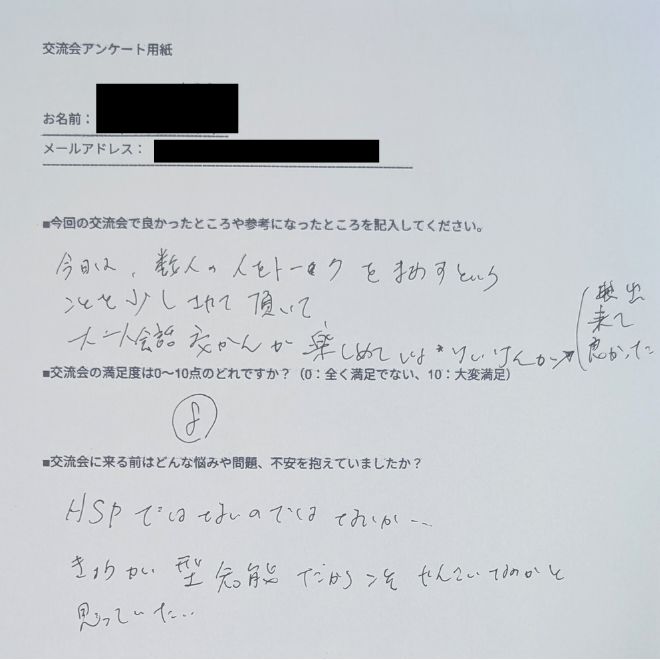 交流会アンケート用紙
お名前：
メールアドレス：
■今回の交流会で良かったところや参考になったところを記入してください。
今日は、数人の人をトークをまわすという
ことを少しされて頂いて
会話 楽しめて
出
来て
良かった
■交流会の満足度は0〜10点のどれですか？（0：全く満足でない、10：大変満足）
8
■交流会に来る前はどんな悩みや問題、不安を抱えていましたか？
HSPではないのではないか…
型 だからこそ なのかと
思っていた…